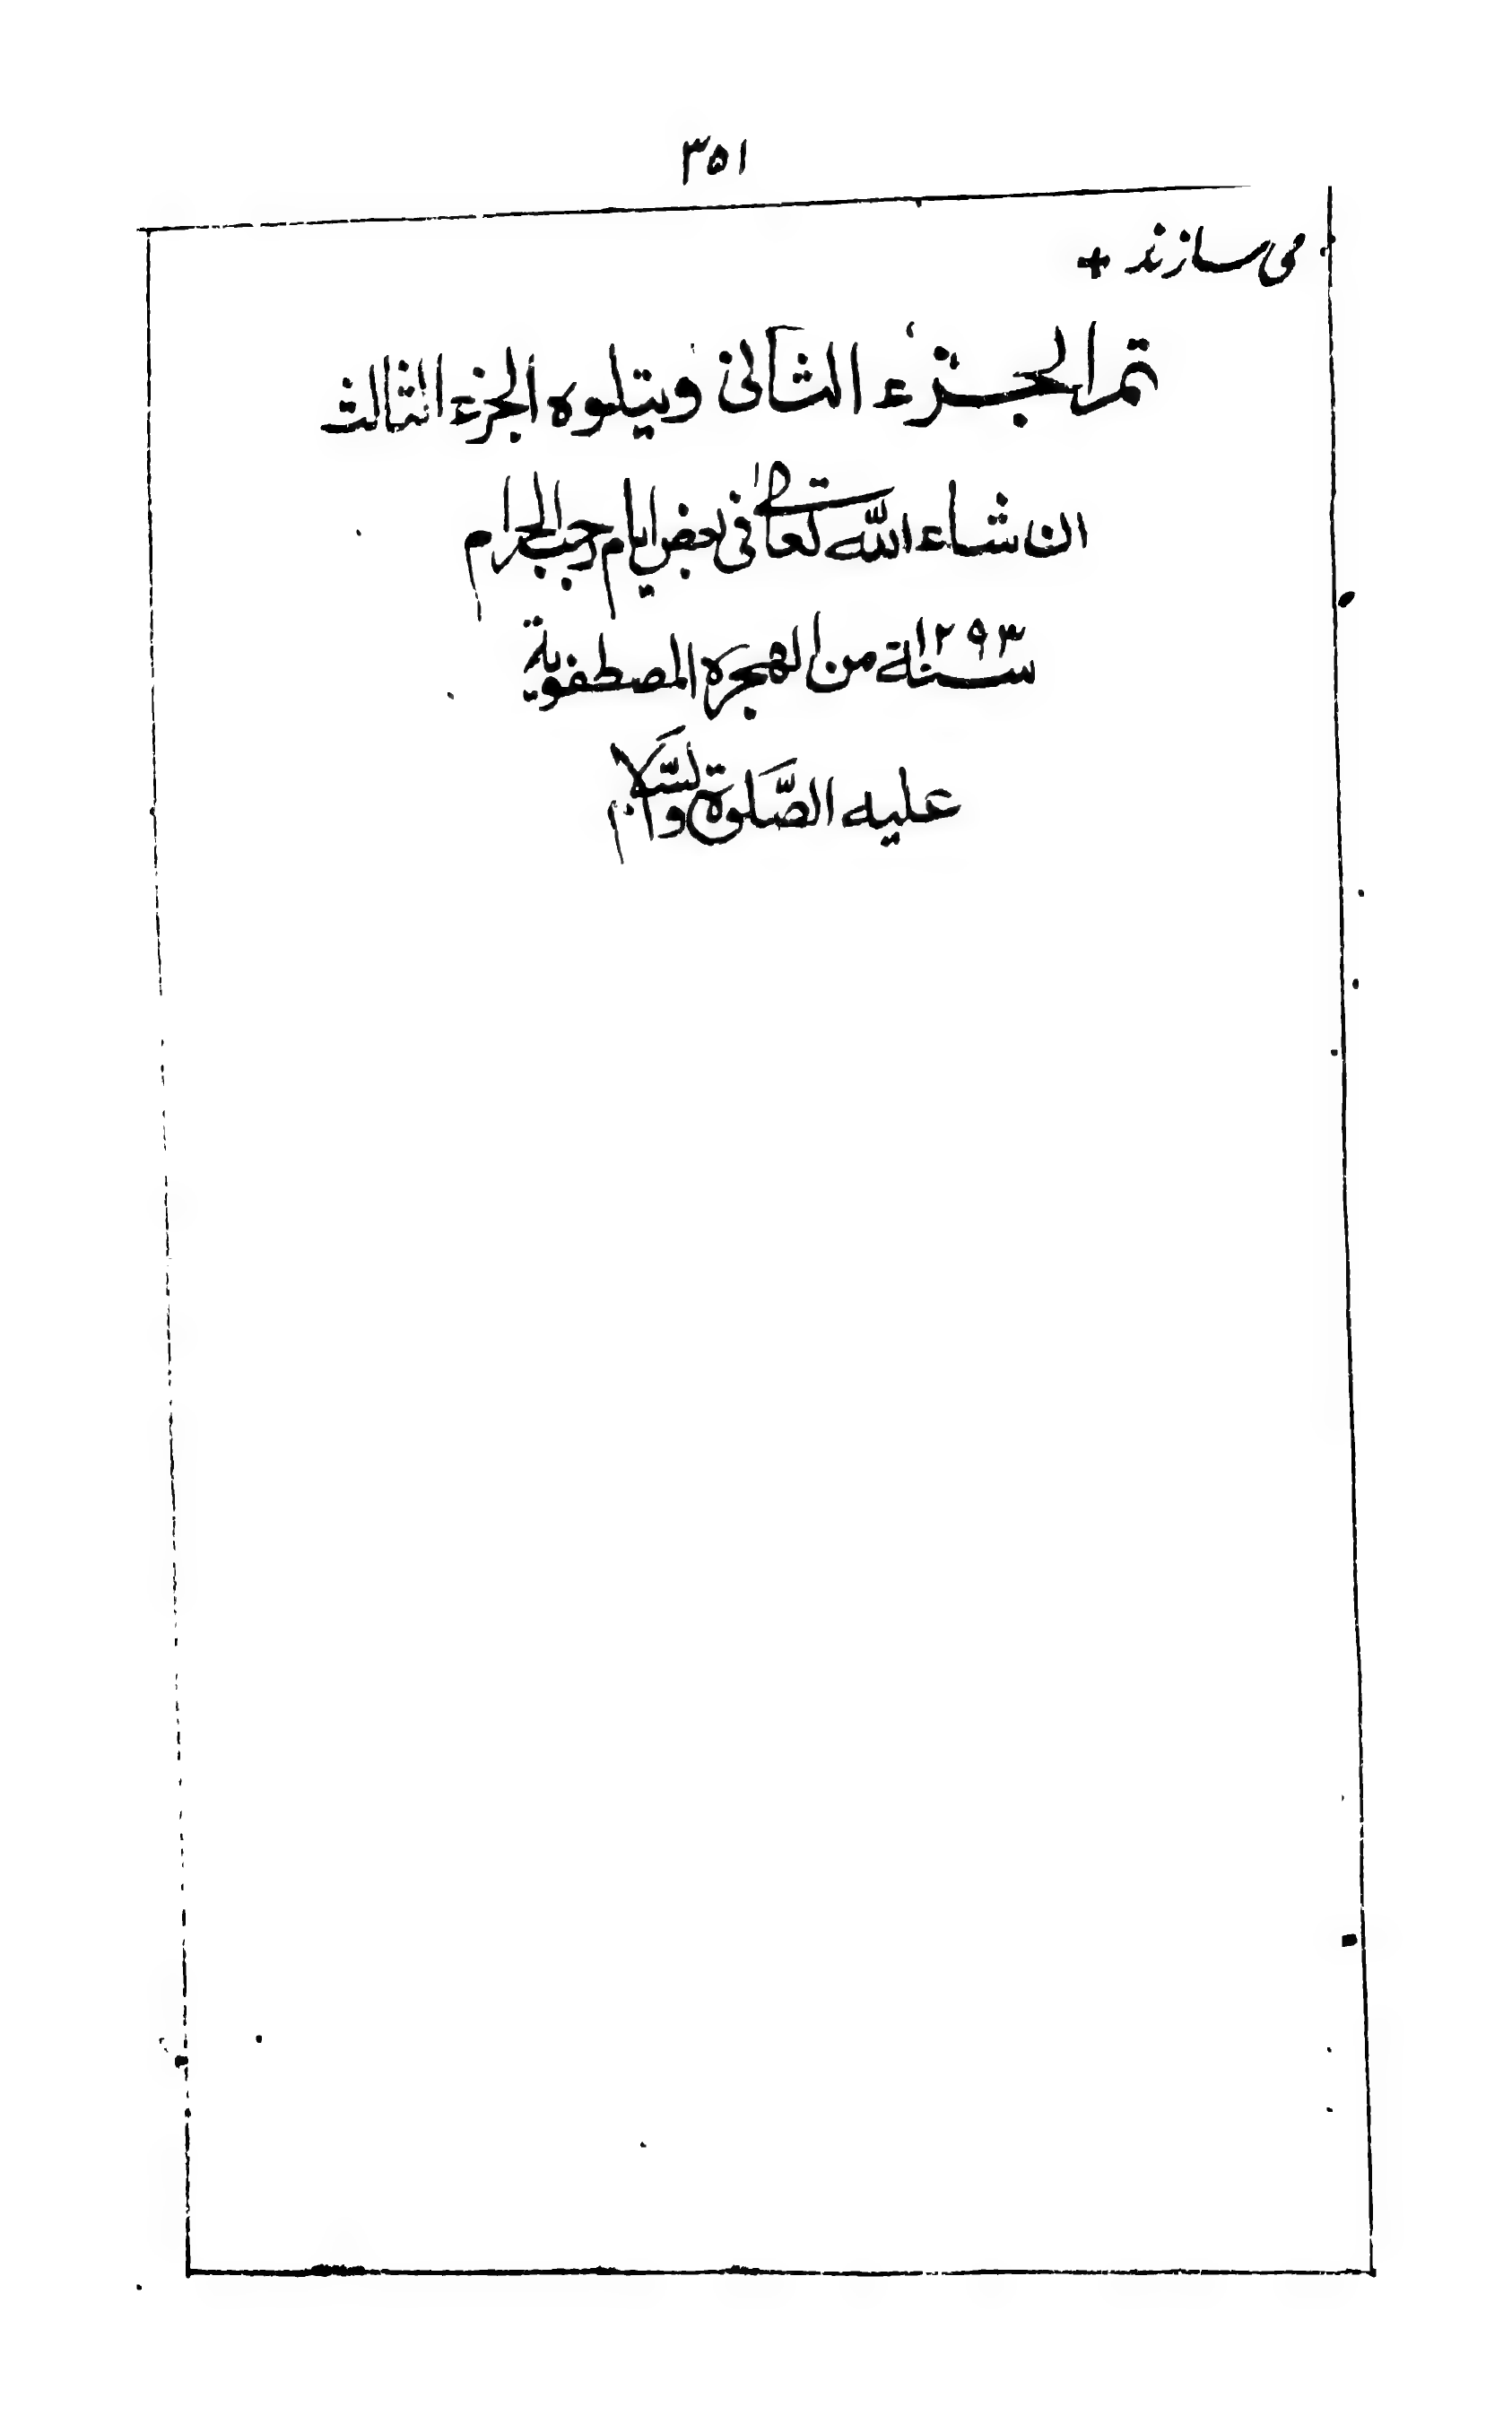 ۳۵۱
می سازند +
تم الجزء الثانی ویتلوه الجزء الثالث
ان شاء الله تعالی فی بعض ایام رجب الحرام
سنة ۱۲۹۳ من الهجرة المصطفویة
علیه الصّلوة والسّلام